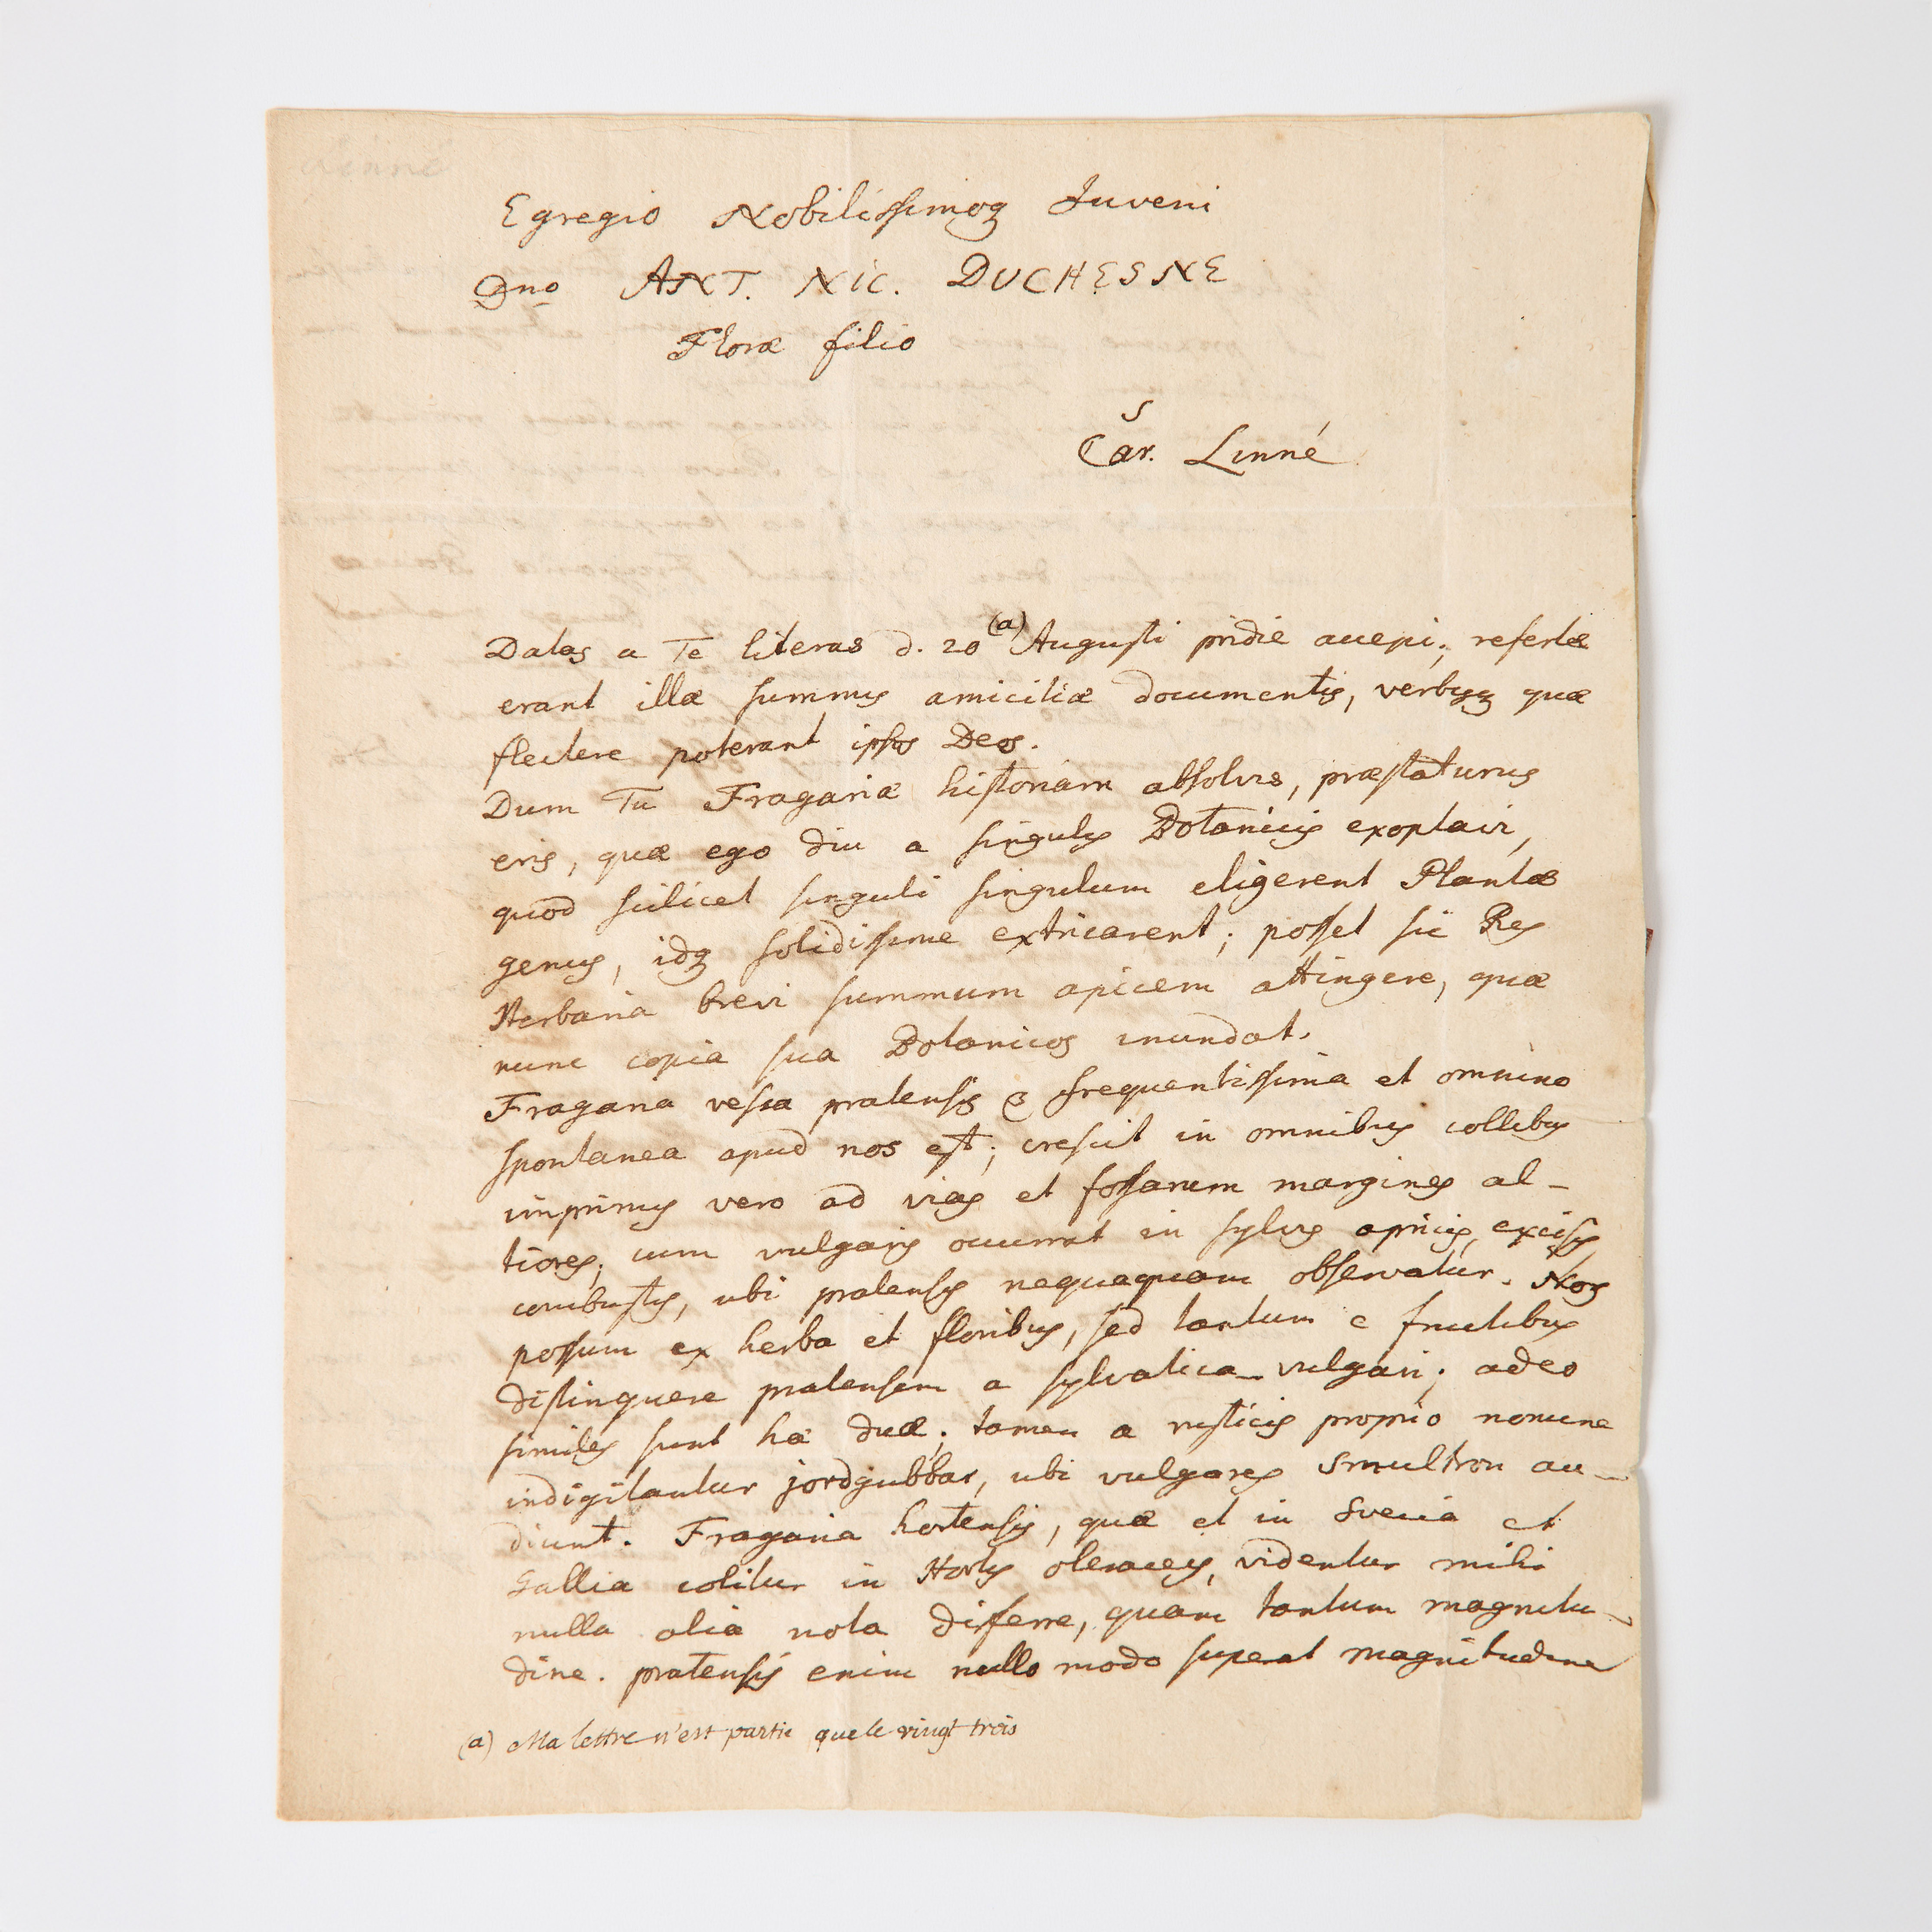 Egregio Nobilissimoq Juveni
Dno ANT. NIC. DUCHESNE
Floræ filio
S
Car. Linné
Datas a Te literas d. 20 (a) Augusti pridie accepi; refertæ
erant illæ summis amicitiæ documentis, verbisq quæ
flectere poterant ipsos Deos.
Dum Tu Fragariæ historiam absolvis, præstaturus
eris, quæ ego diu a singulis Botanicis exoptavi,
quod scilicet singuli singulum eligerent Plantæ
genus, idq solidissime extricarent; posset sic Res
Herbaria brevi summum apicem attingere, quæ
nunc copia sua Botanicos inundat.
Fragaria vesca pratensis β frequentissima et omnino
spontanea apud nos est; crescit in omnibus collibus
imprimis vero ad vias et fossarum margines al-
tiores; cum vulgaris occurrat in sylvis apricis, excisis,
combustis, ubi pratensis nequaquam observatur. Non
possum ex herba et floribus, sed tantum e fructibus
distinguere pratensem a sylvatica vulgari; adeo
similes sunt hæ duæ; tamen a rusticis proprio nomine
indigitantur jordgubbar, ubi vulgares Smultron au-
diunt. Fragaria hortensis, quæ et in Svecia et
Gallia colitur in Hortis oleraceis, videntur mihi
nulla alia nota differre, quam tantum magnitu-
dine. pratensis enim nullo modo superat magnitudine
(a) Ma lettre n'est partie que le vingt trois